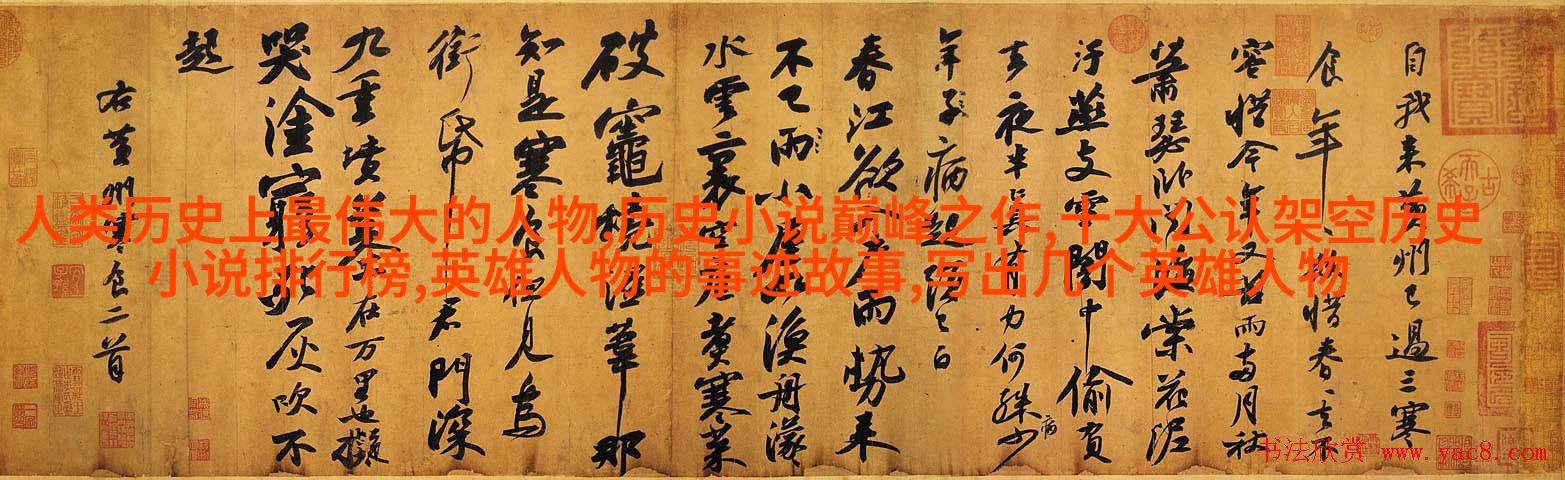 人类历史上最伟大的人物,历史小说巅峰之作,十大公认架空历史
小说排行榜,英雄人物的事迹故事,写出几个英雄人物
自我来黄州已過三寒
食年、欲惜春、去不
容惜今年又苦雨兩月秋
蕭瑟卧聞海棠花泥
汙燕支雪闇中偷負
去夜半真有力何殊少
病
年子病起頭已白
春江欲入户雨勢来
不已雨小屋如漁舟濛
水雲裏空庖煮寒菜
破竈燒濕葦那
知是寒食但見烏
銜帋君門深
九重墳墓在万里也擬
哭塗窮死灰吹不
起
右黄州寒食二首
书法欣赏 www.yac8.com